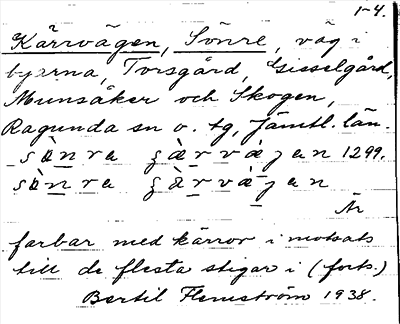 1-4.
Kärrvägen, Sönre, väg i
byarna, Torsgård, Gisselgård,
Munsåker och Skogen,
Ragunda sn o. tg, Jämtl. län.
sὰnra ʂὰrvàjan 1299.
sὰnra ʂὰrvàjan
Är
farbar med kärror i motsats
till de flesta stigar i (forts.)
Bertil Flemström 1938.